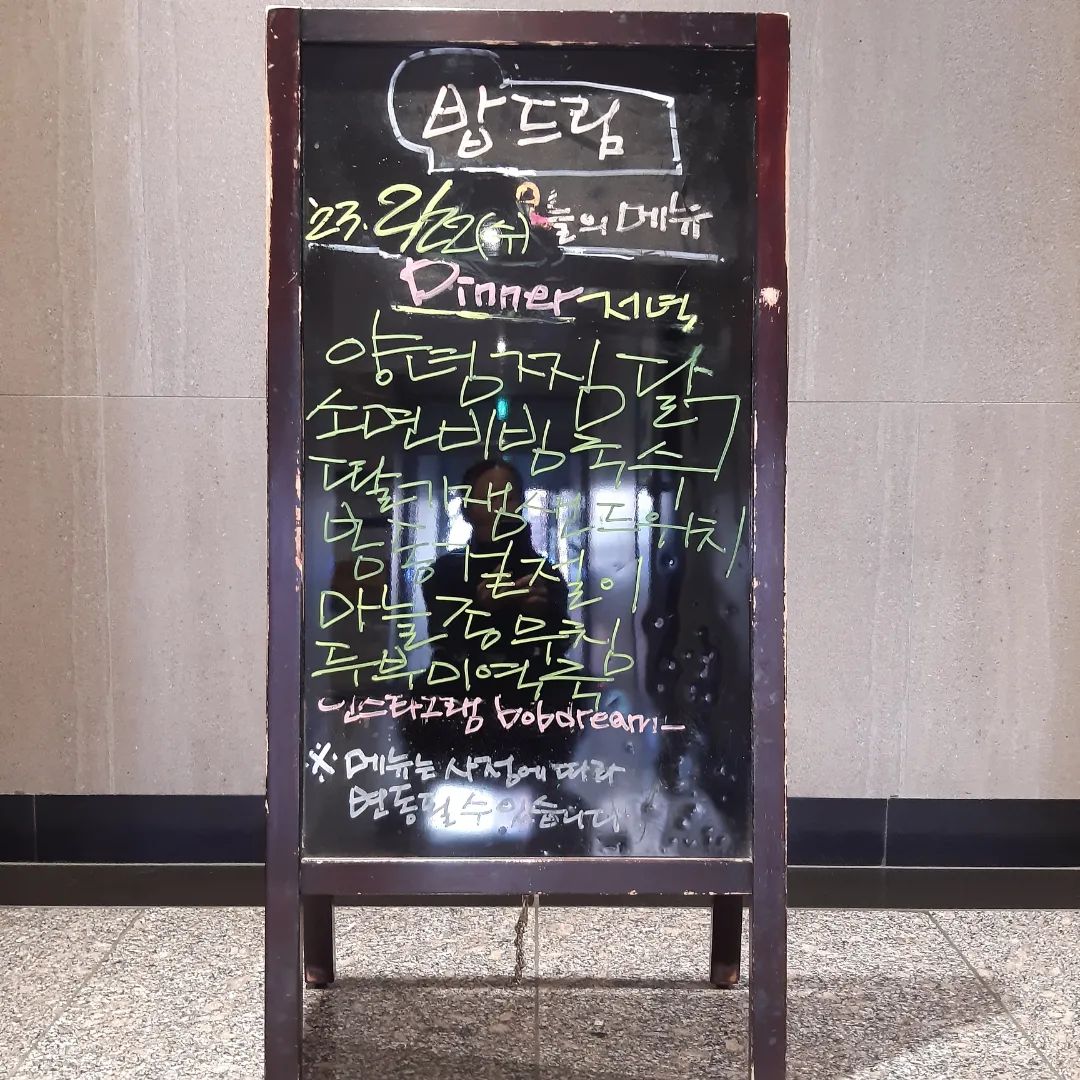 밥드림
'23. 2/22 (수) 오늘의 메뉴
Dinner 저녁
양념찜닭
소면비빔국수
딸기잼샌드위치
봄동겉절이
마늘종무침
두부미역국
인스타그램 bobdream_
※ 메뉴는 사정에 따라
변동될 수 있습니다